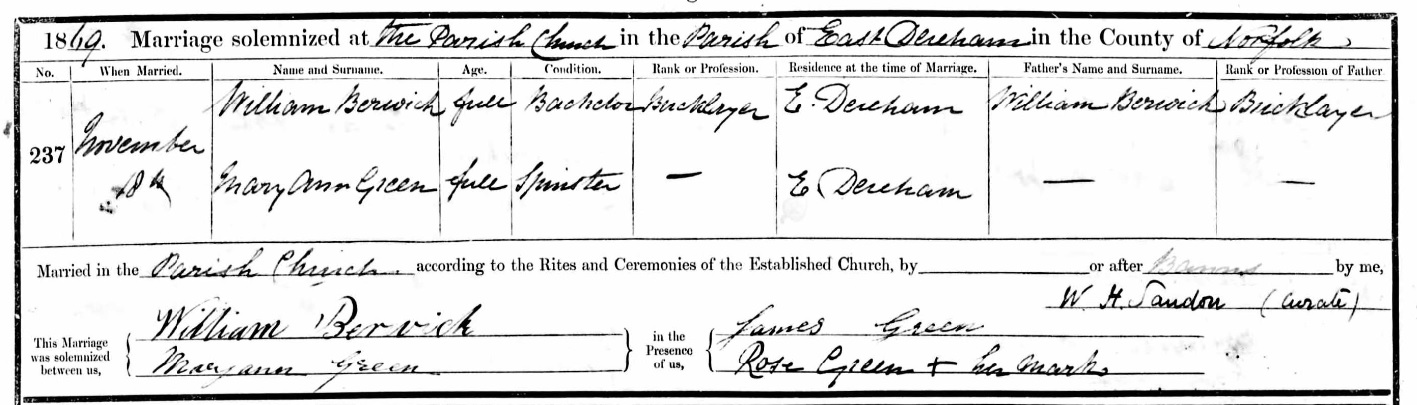 1869. Marriage solemnized at the Parish Church in the Parish of East Dereham in the County of Norfolk
No. When Married. Name and Surname. Age. Condition. Rank or Profession. Residence at the time of Marriage. Father's Name and Surname. Rank or Profession of Father
William Berwick full Bachelor Bricklayer E. Dereham William Berwick Bricklayer
237 November
18th Mary Ann Green full Spinster — E. Dereham — —
Married in the Parish Church according to the Rites and Ceremonies of the Established Church, by or after Banns by me,
W. H. Sandon (Curate)
This Marriage was solemnized between us, William Berwick in the Presence of us, James Green
Maryann Green Rose Green + her mark